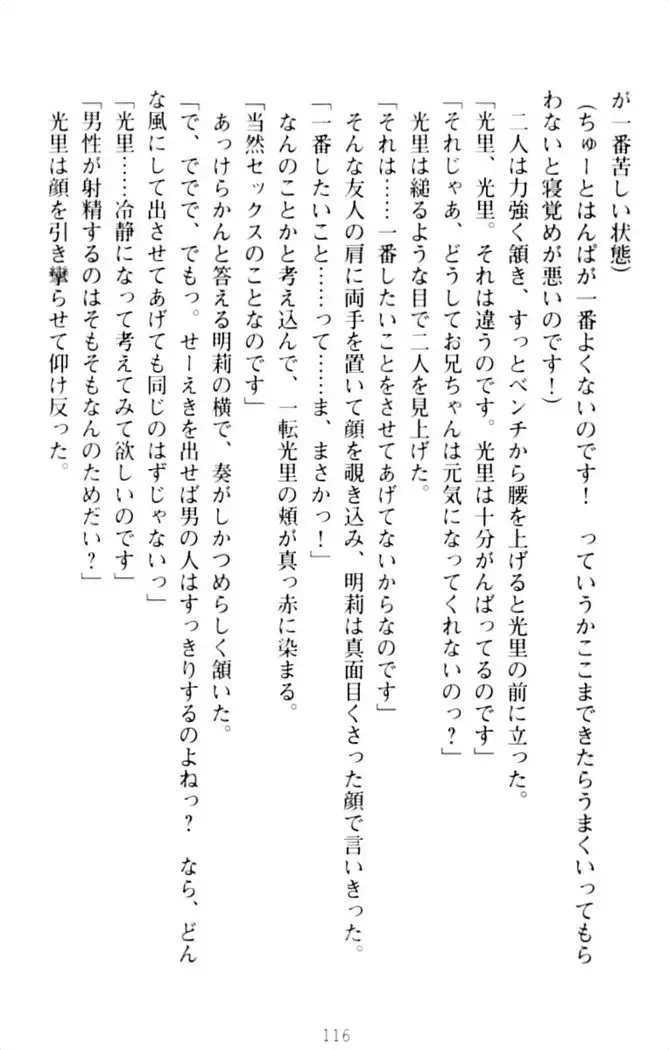 が一番苦しい状態)
(ちゅーとはんぱが一番よくないのです！　っていうかここまできたらうまくいってもら
わないと寝覚めが悪いのです！)
二人は力強く頷き、すっとベンチから腰を上げると光里の前に立った。
「光里、光里。それは違うのです。光里は十分がんばってるのです」
「それじゃあ、どうしてお兄ちゃんは元気になってくれないのっ？」
光里は縋るような目で二人を見上げた。
「それは……一番したいことをさせてあげてないからなのです」
そんな友人の肩に両手を置いて顔を覗き込み、明莉は真面目くさった顔で言いきった。
「一番したいこと……って……ま、まさかっ！」
なんのことかと考え込んで、一転光里の頬が真っ赤に染まる。
「当然セックスのことなのです」
あっけらかんと答える明莉の横で、奏がしかつめらしく頷いた。
「で、ででで、でもっ。せーえきを出せば男の人はすっきりするのよねっ？　なら、どん
な風にして出させてあげても同じのはずじゃないっ」
「光里……冷静になって考えてみて欲しいのです」
「男性が射精するのはそもそもなんのためだい？」
光里は顔を引き攣らせて仰け反った。
116